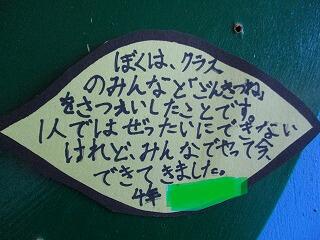 ぼくは、クラス
のみんなと「ごんぎつね」
をさつえいしたことです。
1人ではぜったいにできない
けれど、みんなでやって今
できてきました。
4年